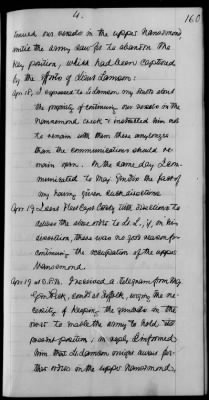 4.
160
towed our vessels in the upper Nansemond
until the army saw fit to abandon the
key position, which had been captured
by the efforts of Lieut Lamson:
Apr 18, I expressed to Lt Lamson, my doubts about
the propriety of continuing our vessels in the
Nansemond creek & instructed him not
to remain with them there any longer
than the communications should re-
main open. On the same day I com-
municated to Maj. Gen Dix the fact of
my having given such directions
Apr 19 I sent Fleet Capt Crosby with directions to
deliver the above order to Lt. L., if, in his
discretion, there was no good reason for
continuing the occupation of the upper
Nansemond.
Apr 19 at 8 P.M. I received a telegram from Brig
Gen Peck, comd'g at Suffolk, urging the ne-
cessity of keeping the gunboats in the
river to enable the army to hold its
present position, in reply I informed
him that Lt Lamson might await fur-
ther orders in the upper Nansemond,